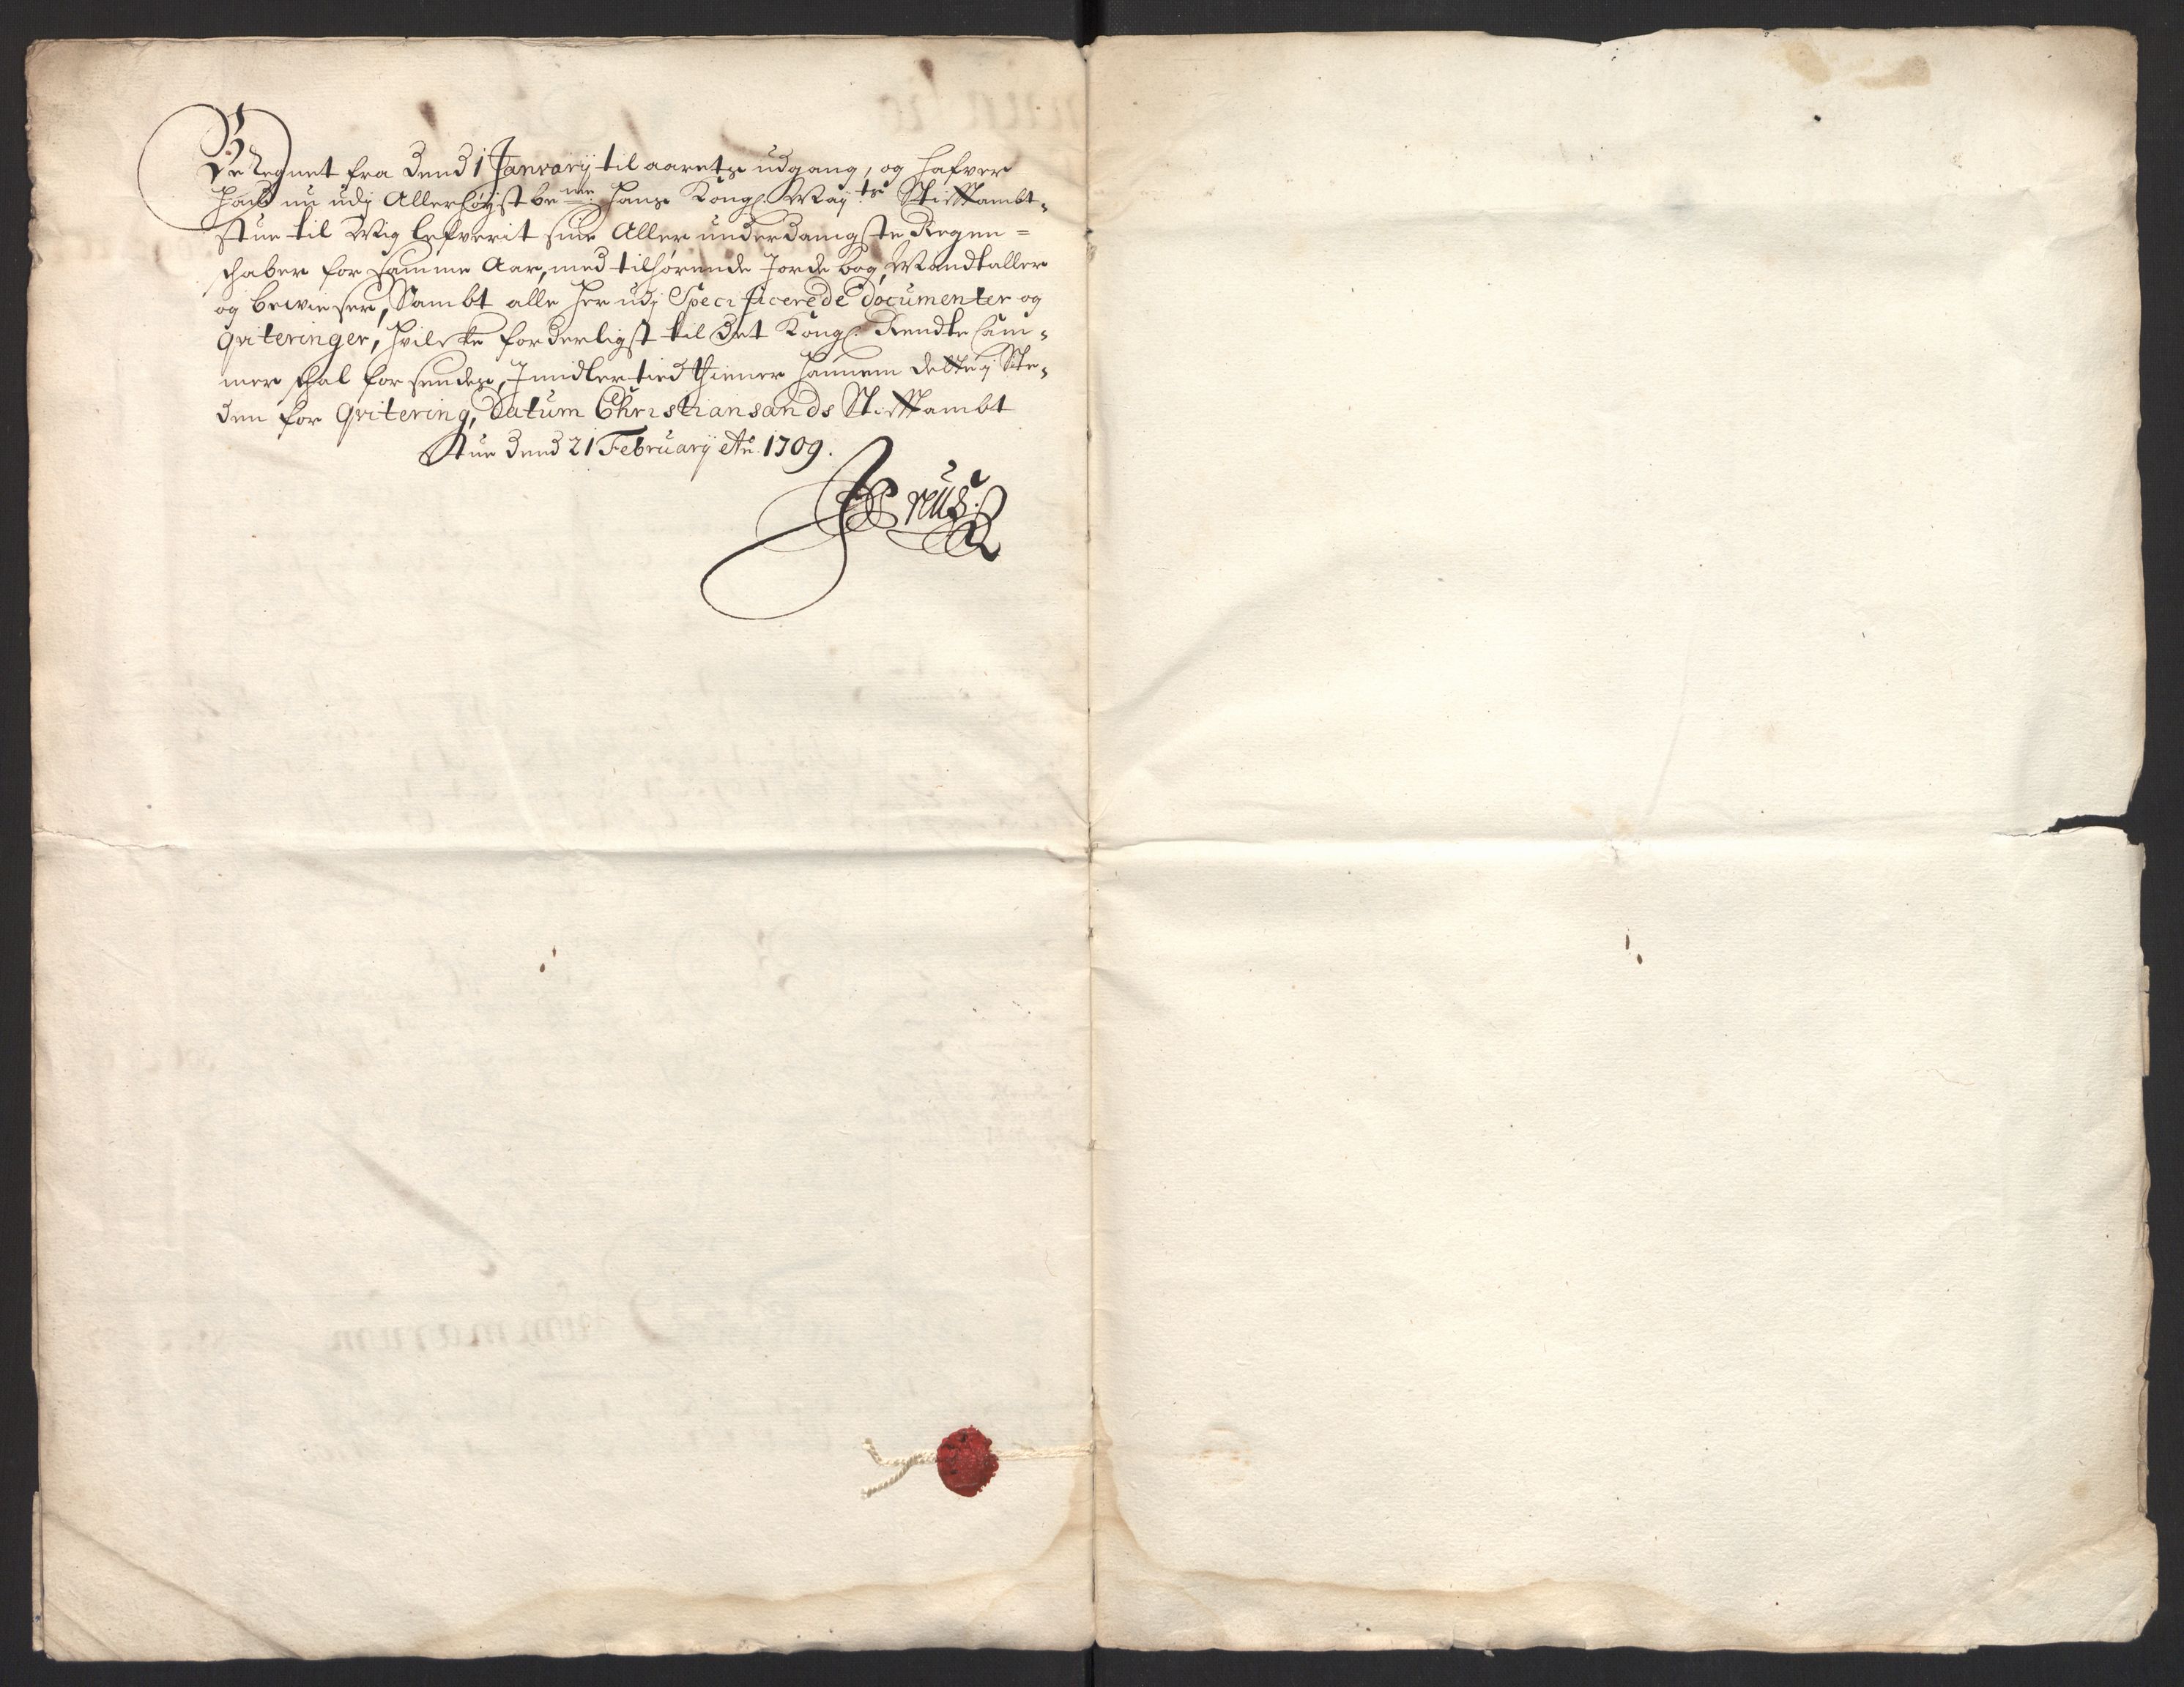 Beregnet fra dend 1 Janrarij til aarets udgang, og hafver
hand nu udj Allerhøyst be.me: hans Kongl: May:ts Stifftambt-
stue til Mig lefverit sine Aller underdanigste Regen=
schaber for samme Aar, med tilhørende Jorde bog, Mandtaller
og bevieser, Sambt alle her udj Specificerede documenter og
Qviteringer, hvilcke forderligst til det Kongl: Rendte Cam-
mer schal forsendes, Jmidlertid thiener hannem dette j Ste-
den for Qvitering, Datum Christiansands Stifftambt
Stue dend 21 February Ao. 1709.